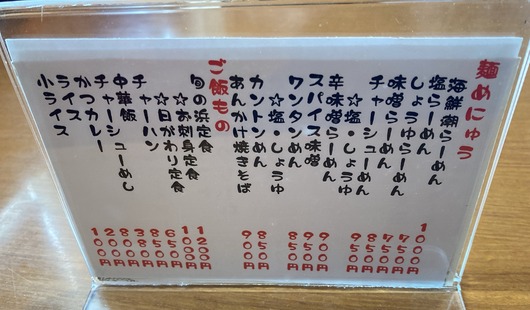 麺めにゅう
海鮮潮らーめん 1000円
塩らーめん
しょうゆらーめん
味噌らーめん
チャーシューめん
☆塩・しょうゆ 950円
辛味噌らーめん
スパイス味噌 900円
ワンタンめん
☆塩・しょうゆ 850円
カントンめん 850円
あんかけ焼きそば 900円
ご飯もの
旬の浜定食
☆お刺身定食 1200円
☆日がわり定食 1000円
チャーハン 650円
中華飯 850円
チャーシューめし
かつカレー 800円
ライス 200円
小ライス 100円